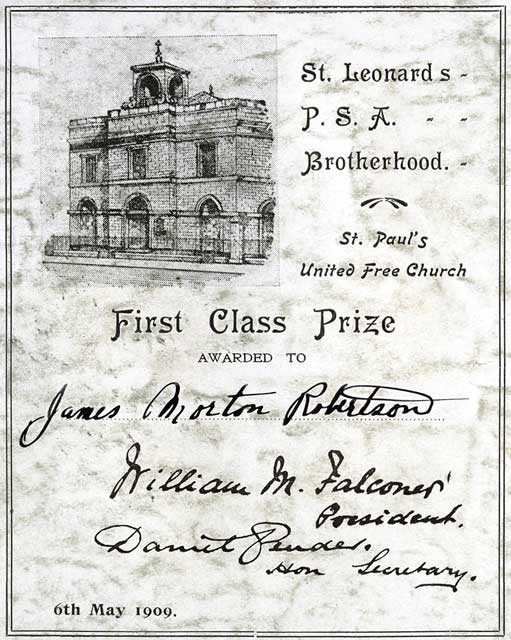 St. Leonards -
P. S. A. - -
Brotherhood. -
St. Paul's
United Free Church
First Class Prize
AWARDED TO
James Morton Robertson
William M. Falconer
President.
Daniel Pender.
Hon Secretary.
6th May 1909.